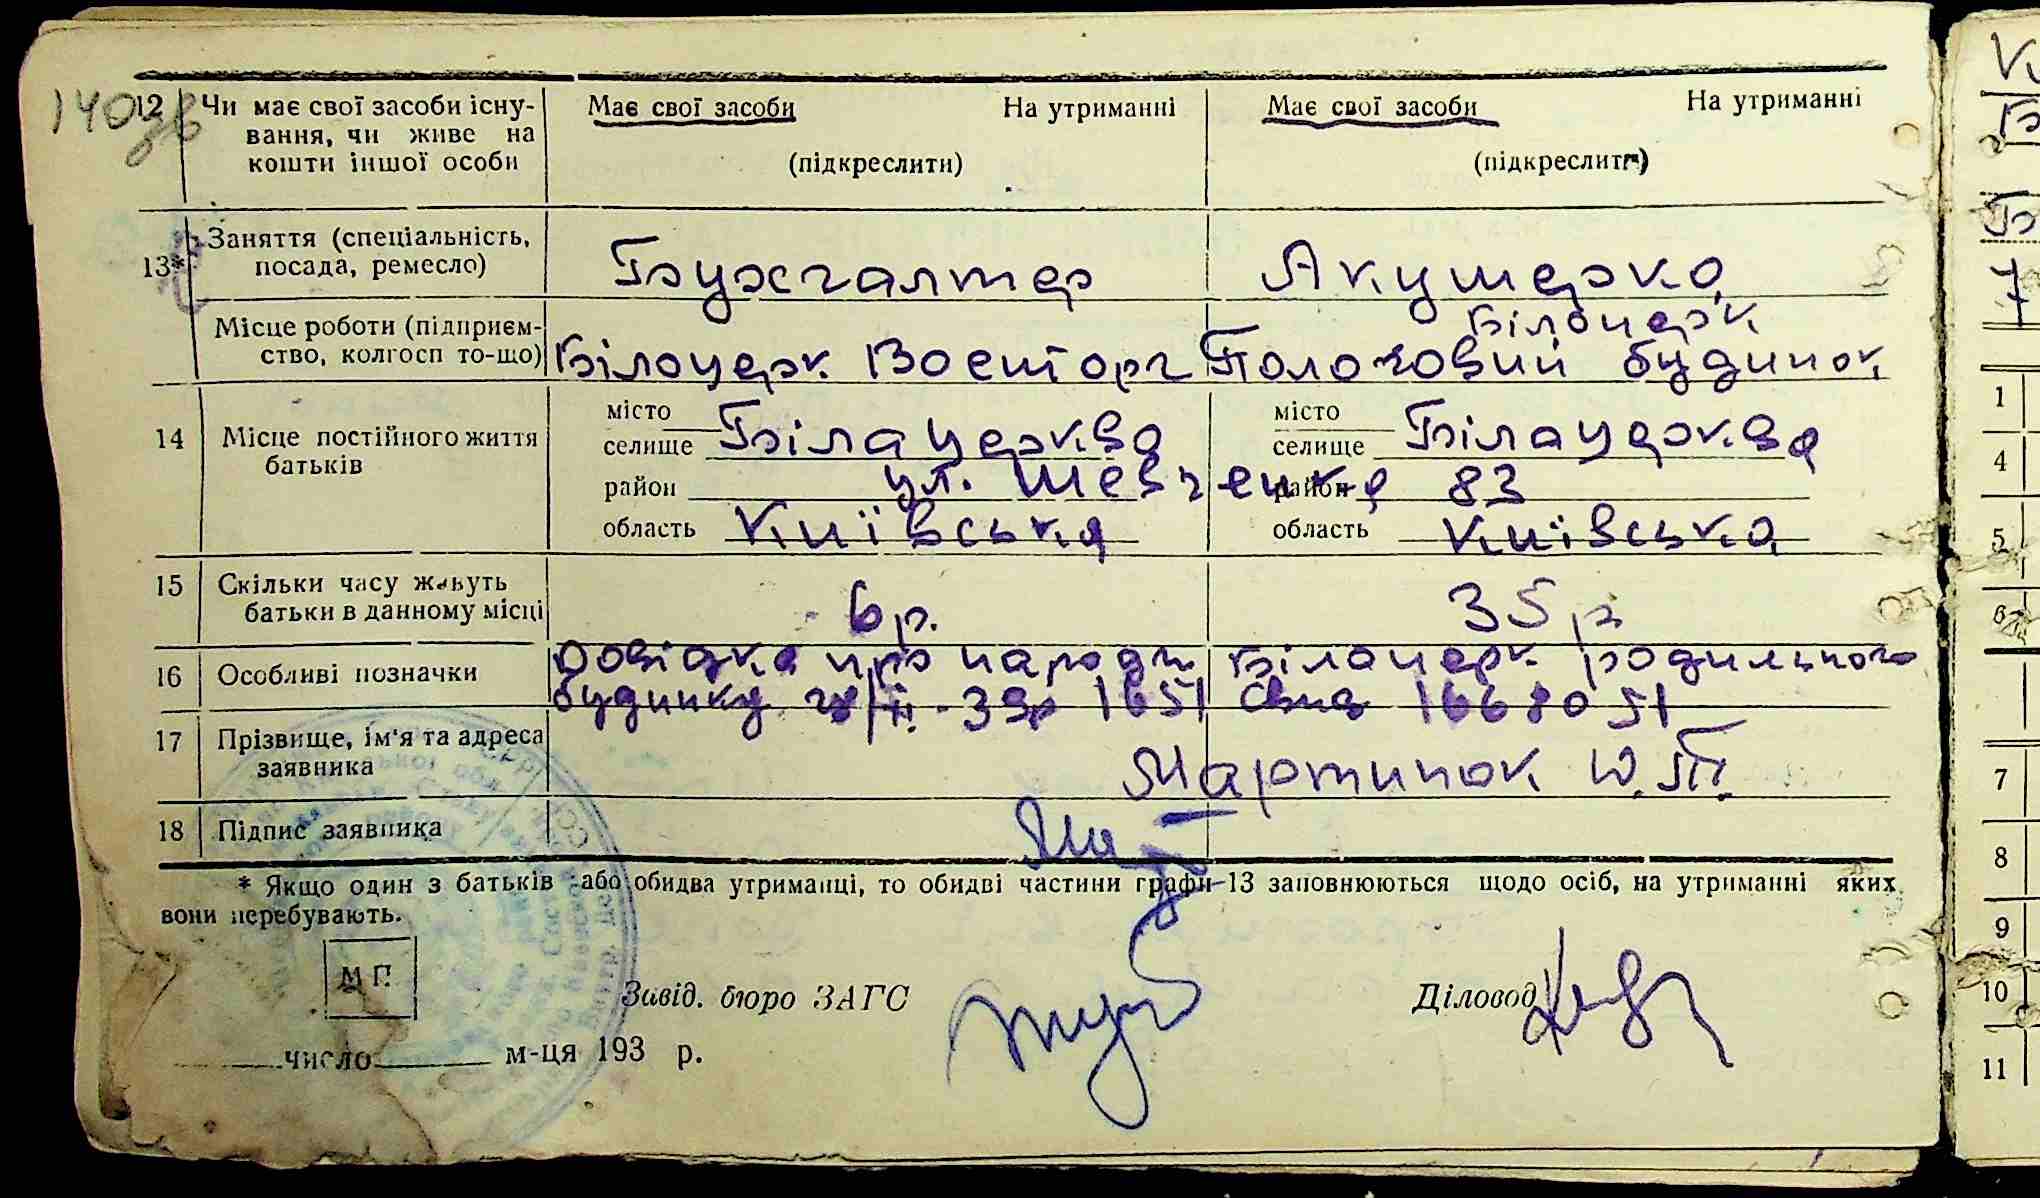 140 зв
12 Чи має свої засоби існу- Має свої засоби На утриманні Має свої засоби На утриманні
вання, чи живе на
кошти іншої особи (підкреслити) (підкреслити)
13* Заняття (спеціальність, Бухгалтер Акушерка
посада, ремесло)
Білоцерк
Місце роботи (підприєм-
ство, колгосп то-що) Білоцерк Воєнторг Пологовий будинок
14 Місце постійного життя місто місто
батьків селище Біла церква селище Біла церква
район ул. Шевченка район 83
область Київська область Київська
15 Скільки часу живуть 6 р. 35 р
батьки в данному місці
16 Особливі позначки Довідка про народж Білоцерк родильного
будинку 39р 1651 1668051
17 Прізвище, ім'я та адреса
заявника Мартинюк
18 Підпис заявника
* Якщо один з батьків або обидва утриманці, то обидві частини графи 13 заповнюються щодо осіб, на утриманні яких
вони перебувають.
М П.
Завід. бюро ЗАГС Діловод
число м-ця 193 р.
1
4
5
6
7
8
9
10
11